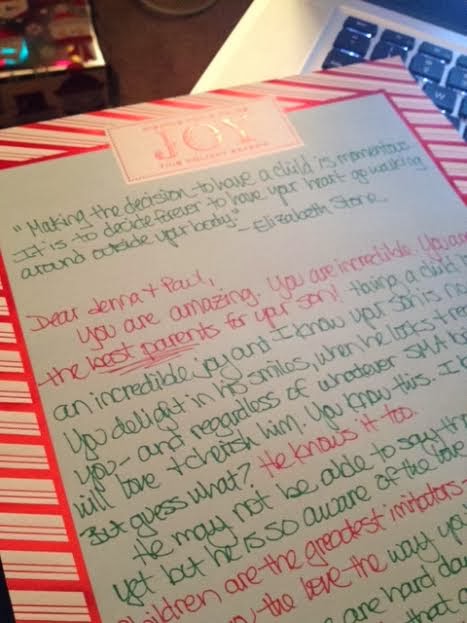 JOY
THIS HOLIDAY SEASON
"Making the decision to have a child is momentous.
It is to decide forever to have your heart go walking
around outside your body." - Elizabeth Stone
Dear Jenna + Paul,
You are amazing. You are incredible. You are
the best parents for your son! Having a child
an incredible joy and I know your son is no
You delight in his smiles, when he looks
you - and regardless of whatever SMA
will love + cherish him. You know this. I
But guess what? He knows it too.
He may not be able to say
yet but he is so aware of the love
Children are the greatest imitators -
you the love the way
are hard
that